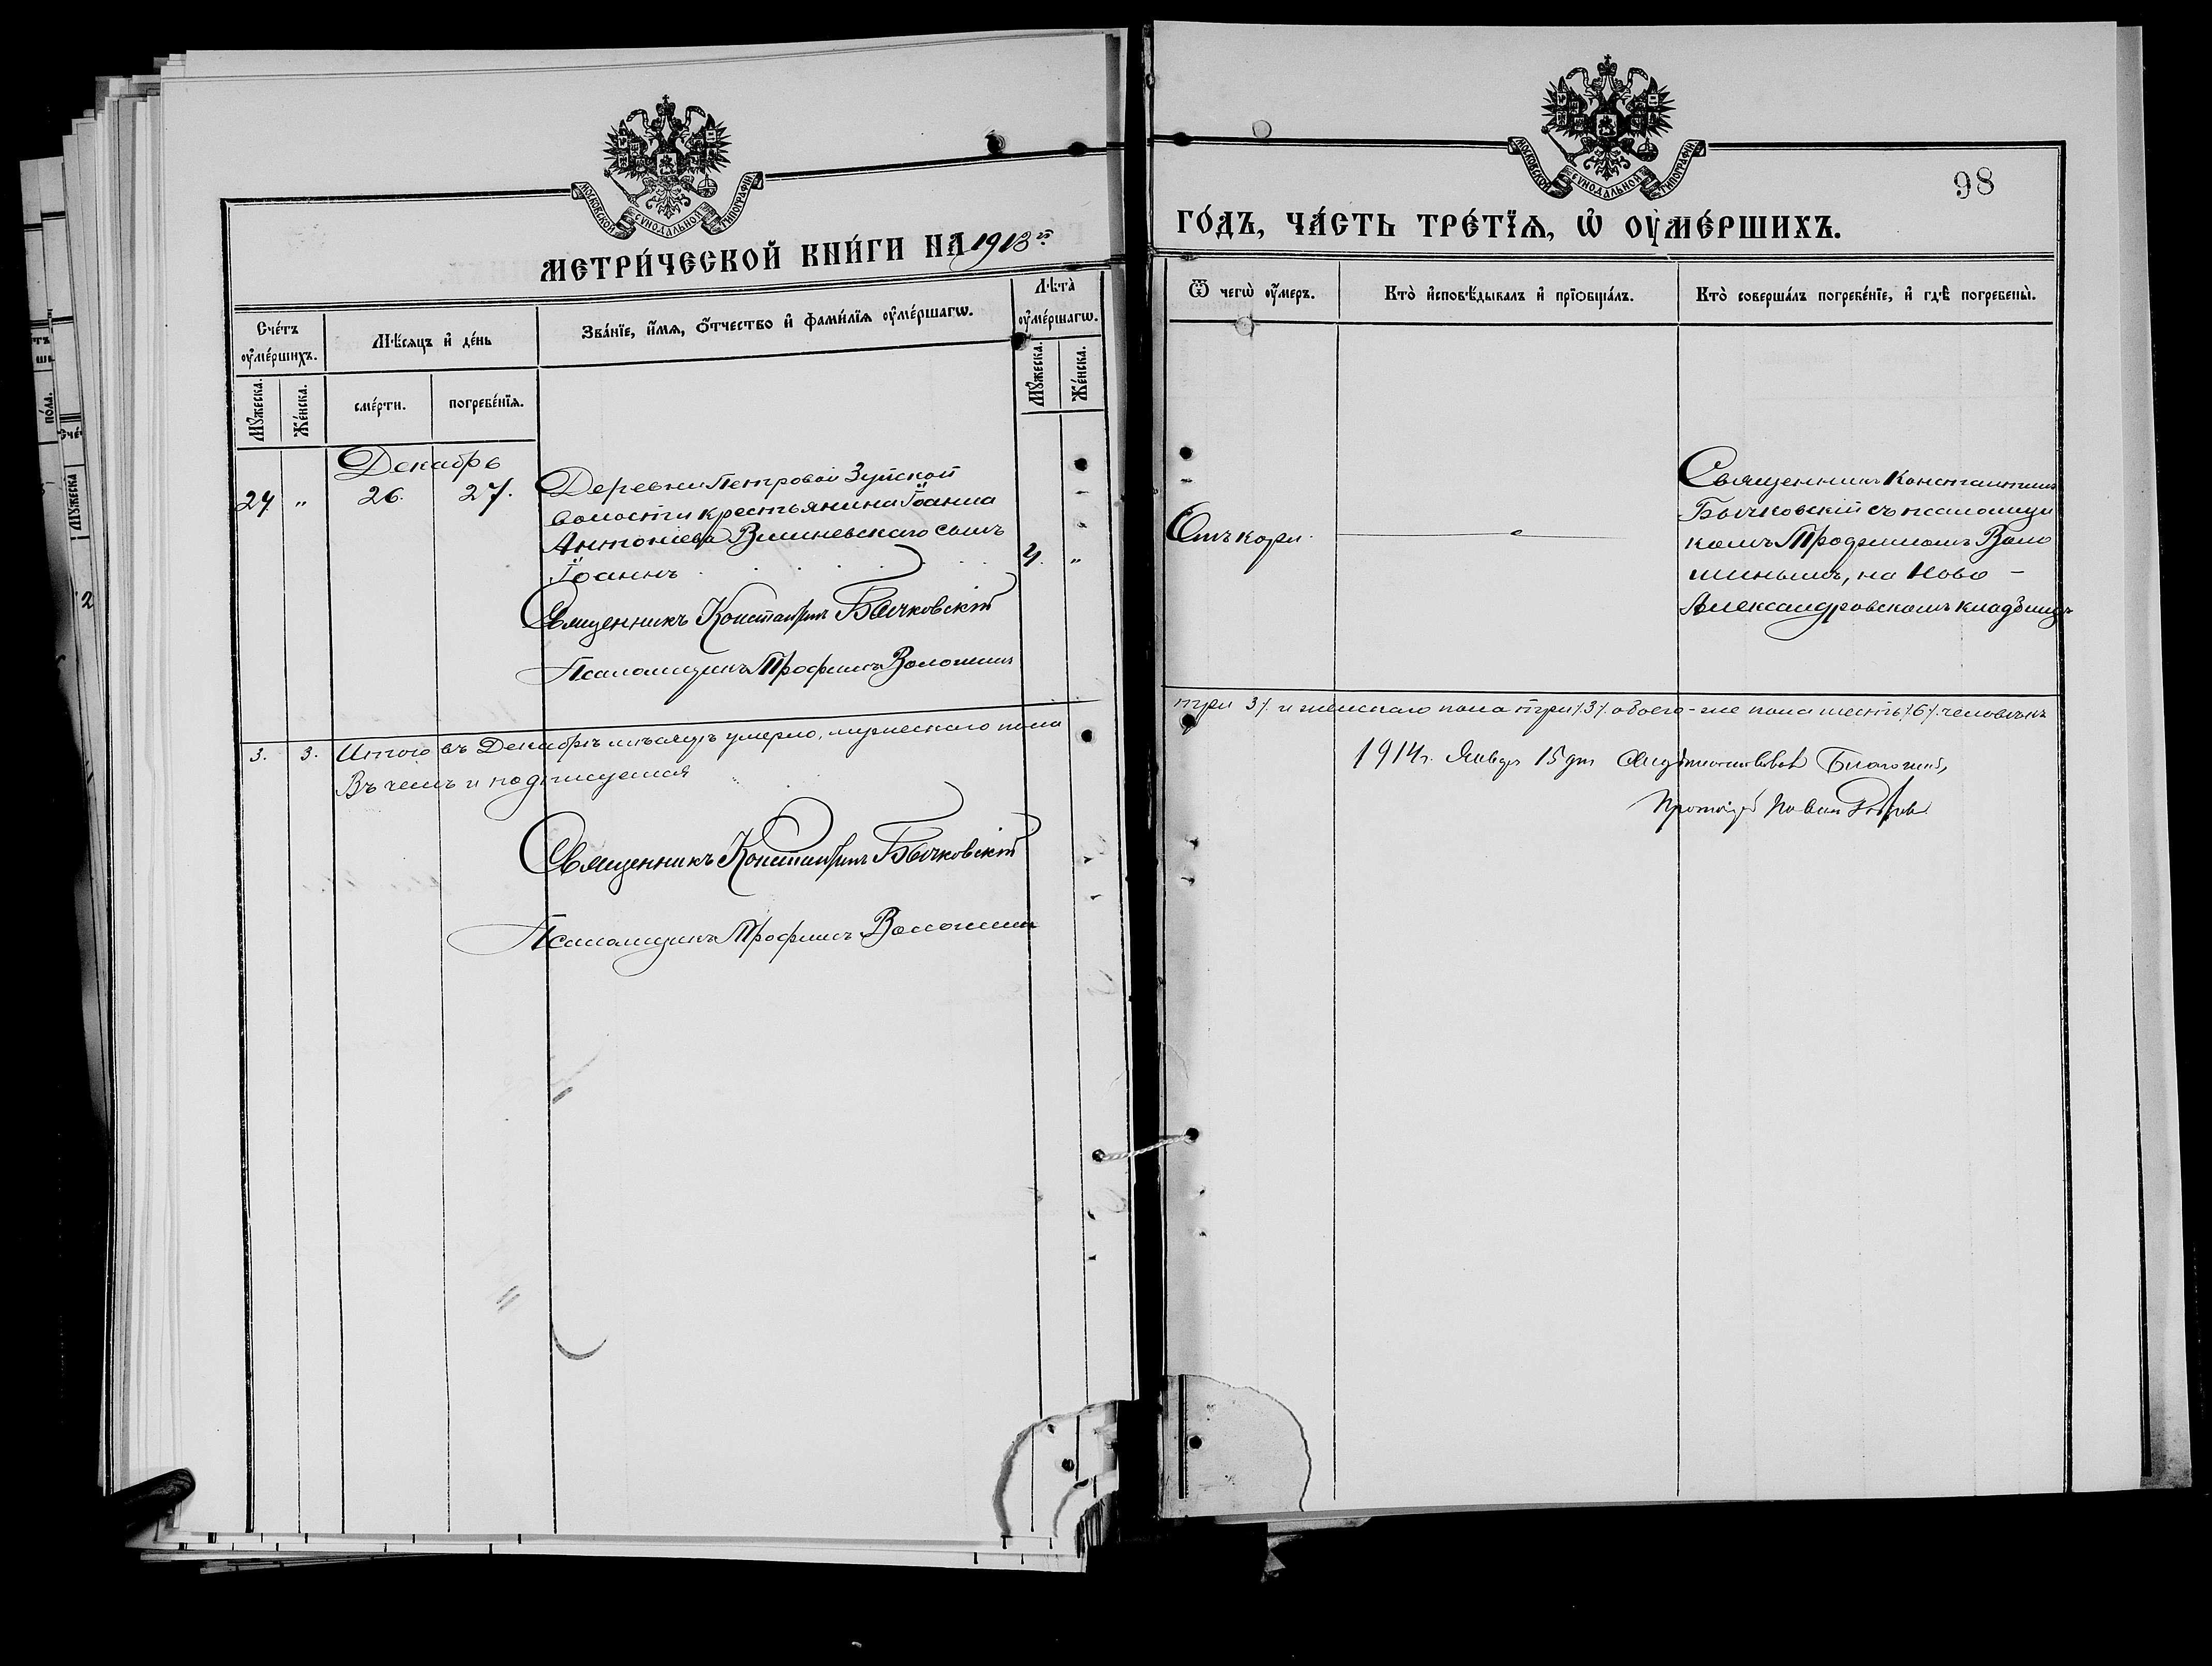 МОСКОВСКОЙ СѴНОДАЛЬНОЙ ТИПОГРАФІИ
МЕТРИ́ЧЕСКОЙ КНИ́ГИ НА 1913й
Сче́тъ ᲂу҆ме́ршихъ.
Мꙋ́жеска.
Же́нска.
Мѣ́сяцъ и҆ де́нь
сме́рти.
погребе́нїѧ.
Зва́нїе, и҆́мѧ, ѻ҆́тчество и҆ фами́лїѧ ᲂу҆ме́ршагѡ.
Лѣ́та ᲂу҆ме́ршагѡ.
Мꙋ́жеска.
Же́нска.
Декабрь
24 " 26. 27.
Деревни Петровой Зуйской
волости крестьянина Іоанна
Антоніева Вишневскаго сынъ
Іоаннъ 4. "
Священникъ Константинъ Бычковскій
Псаломщикъ Трофимъ Волошинъ
3. 3. Итого въ Декабрѣ мѣсяцѣ умерло, мужескаго пола
Въ чемъ и подписуемся
Священникъ Константинъ Бычковскій
Псаломщикъ Трофимъ Волошинъ
МОСКОВСКОЙ СѴНОДАЛЬНОЙ ТИПОГРАФІИ
98
ГО́ДЪ, ЧА́СТЬ ТРЕ́ТЇѦ, Ѡ҆ ОУ҆МЕ́РШИХЪ.
Ѿ чегѡ̀ ᲂу҆́меръ.
Кто̀ и҆сповѣ́дывалъ и҆ прїѡбща́лъ.
Кто̀ соверша́лъ погребе́нїе, и҆ гдѣ̀ погребены̀.
Отъ кори.
Священникъ Константинъ
Бычковскій съ псаломщи
комъ Трофимомъ Воло
шинымъ, на Ново-
Александровскомъ кладбищѣ
три /3/. и женскаго пола три /3/. обоего-же пола шесть /6/. человѣкъ
1914г. Января 15 дня